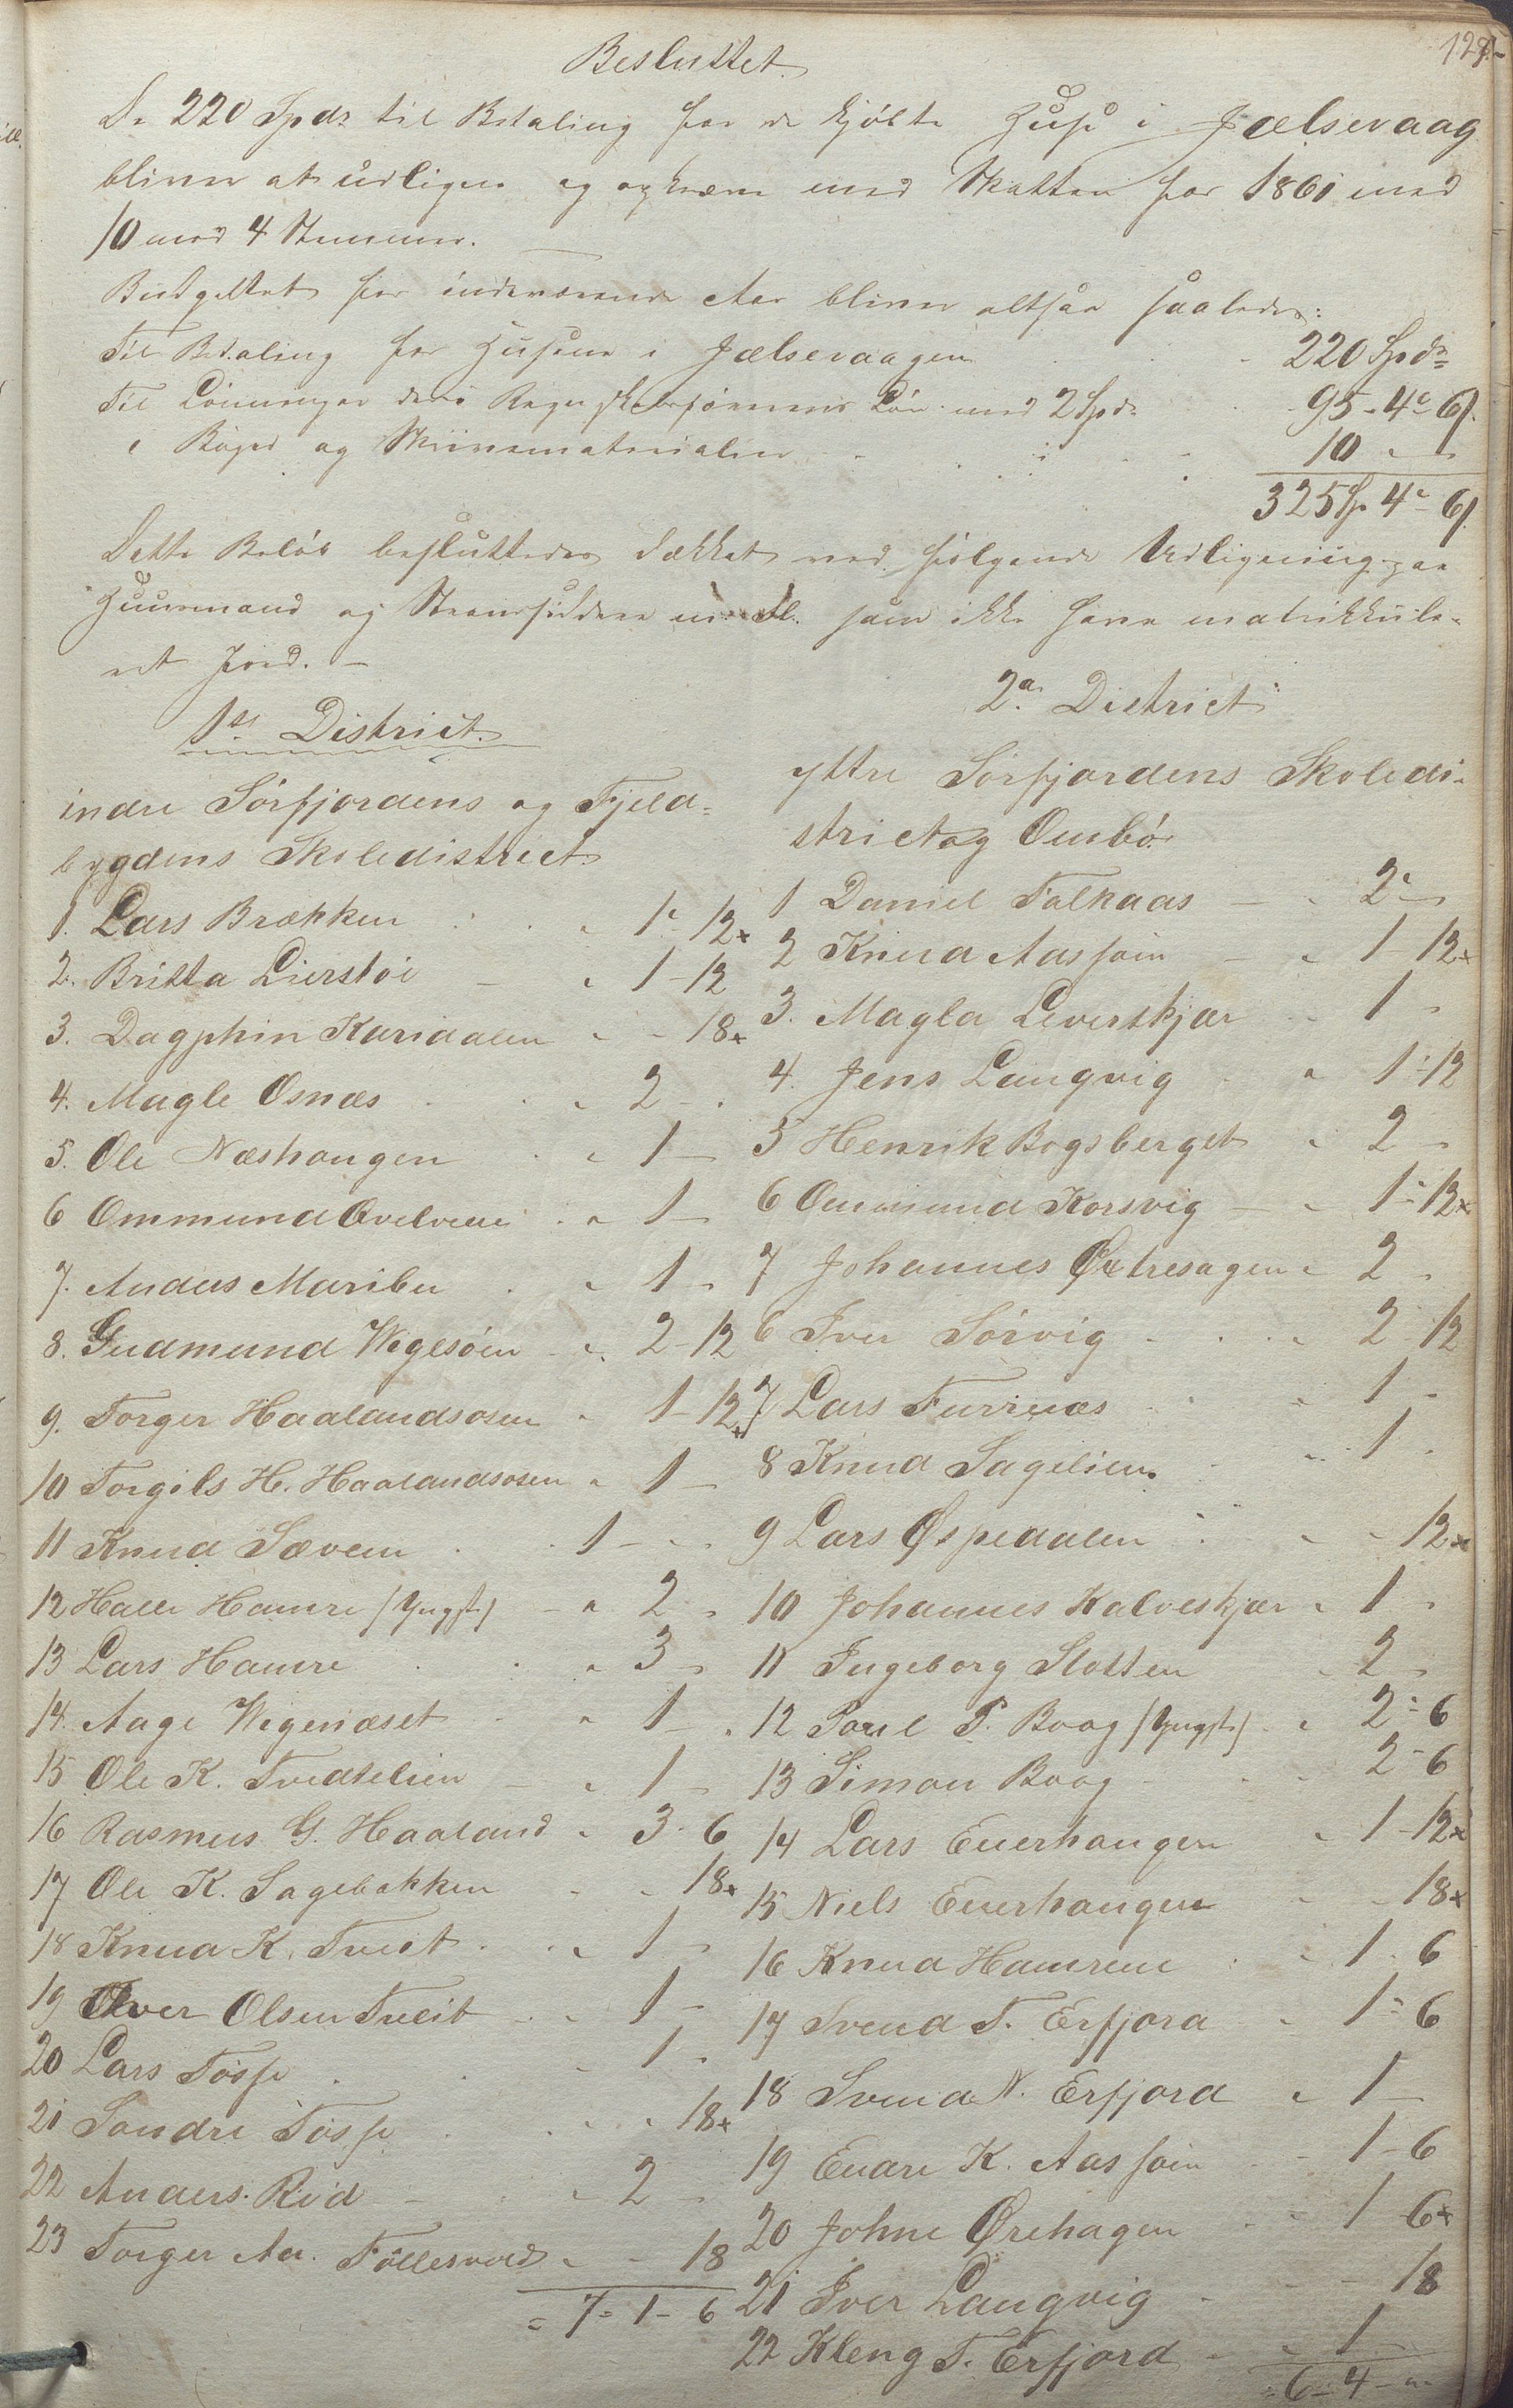 128.
Besluttet
De 220 Spdr til Betaling for de kjöbte Huse i Jælsevaag
bliver at udligne og opkræve med Skatten for 1861 med
10 mod 4 Stemmer.
Budgettet for indeværende Aar bliver altsaa saaledes:
Til Betaling for Husene i Jælsevaagen 220 Spdr
Til Lönninger deri Regnskabsförerens Lön med 2 Spdr 95 - 4 - 6
" Böger og Skrivematerialier 10 "
325 Sp 4 - 6
Dette Belöb besluttedes dækket ved fölgende Udligning paa
Huusmænd og Strandsiddere m. Fl. som ikke have matrikkule-
ret Jord. -
1ste District.
indre Sörfjordens og Fjeld-
bygdens Skoledistrict
1. Lars Brækken " 1 - 12x
2. Britta Lierstöi " 1 - 12
3. Dagphin Karidalen " - 18x
4. Magle Osnæs " 2 -
5. Ole Næshaugen " 1 -
6 Ommund " 1 -
7. Anders Maribu " 1 -
8. Gudmund Wegesöen " 2 - 12
9. Torger Haalandsosen " 1 - 12x
10 Torgils H. Haalandsosen " 1 -
11 Knud Sævem 1 - "
12 Halle Hamre (Yngst) " 2 -
13 Lars Hamre " 3 -
14. Aage Wegenæset " 1 -
15 Ole K. Tvedtelien " 1 -
16 Rasmus G. Haaland " 3 - 6
17 Ole K. Sagebakken " - 18x
18 Knud K. Tveit " 1 -
19 Iver Olsen Tveit " 1 -
20 Lars Tösse " 1 -
21 Sondre Tösse " " 18x
22 Anders Röd " 2 -
23 Torger Aa. Föllesvold " - 18
= 7 - 1 - 6
2det District
yttre Sörfjordens Skoledi-
strict og Ombö
1 Daniel Falkaas " 2 -
2 Knud Aassöin " 1 - 12x
3. Magla Leverskjær " 1 -
4. Jens Langvig " 1 - 12
5 Henrik Bogsberget " 2 -
6 Ommund Korsvig " 1 - 12x
7 Johannes Øxtresagen " 2 -
6 Iver Sörvig " 2 - 12
7 Lars Furrnæs " 1 -
8 Knud Sagelien " 1 -
9 Lars Øspedalen " - 12x
10 Johannes Kalveskjær " 1 -
11 Ingeborg Slotten " 2 -
12 Poul P. Boag (Yngst) " 2 - 6
13 Simon Boag " 2 - 6
14 Lars Euerhaugen " 1 - 12x
15 Niels Euerhaugen " - 18x
16 Knud Hamrene " 1 - 6
17 Svend T. Erfjord " 1 - 6
18 Svend N. Erfjord " 1 -
19 Endre K. Aassöin " 1 - 6
20 Johne Ørehagen " 1 6x
21 Iver Langvig " - 18
22 Kleng T. Erfjord " 1 -
= 6 - 4 - "